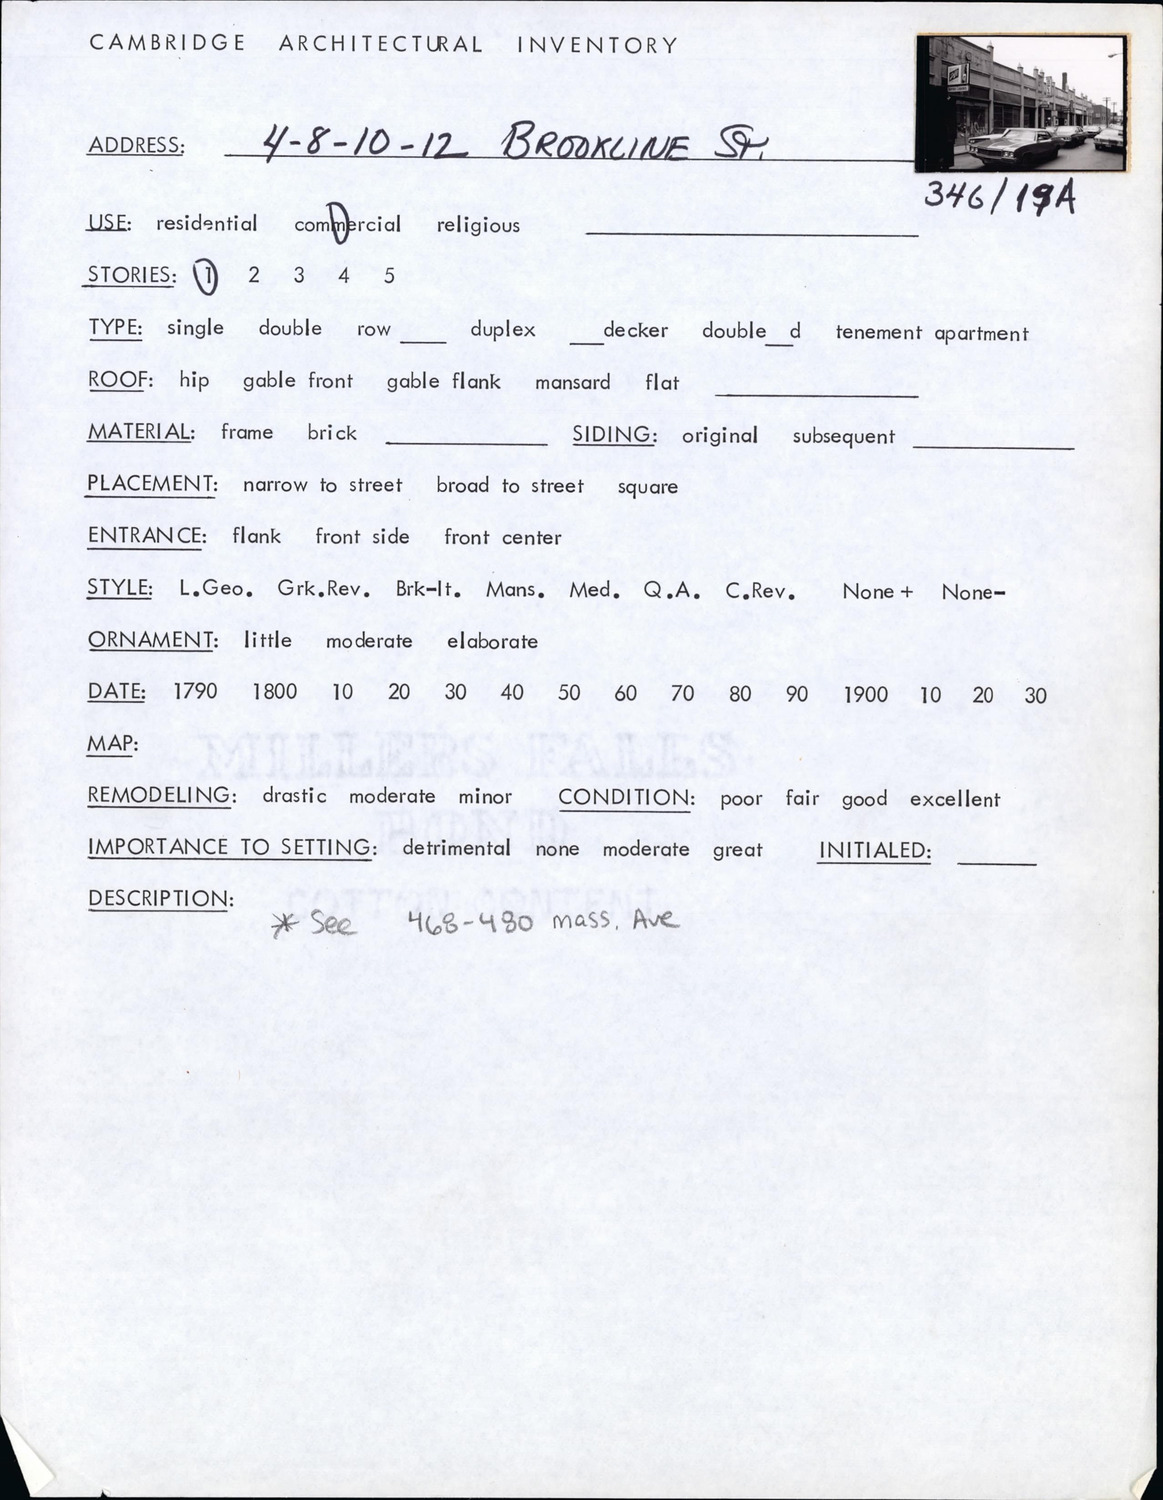 CAMBRIDGE ARCHITECTURAL INVENTORY
ADDRESS: 4-8-10-12 BROOKLINE ST.
346/19A
USE: residential commercial religious
STORIES: 1 2 3 4 5
TYPE: single double row ___ duplex ___decker double__d tenement apartment
ROOF: hip gable front gable flank mansard flat
MATERIAL: frame brick ___ SIDING: original subsequent ___
PLACEMENT: narrow to street broad to street square
ENTRANCE: flank front side front center
STYLE: L.Geo. Grk.Rev. Brk-It. Mans. Med. Q.A. C.Rev. None + None-
ORNAMENT: little moderate elaborate
DATE: 1790 1800 10 20 30 40 50 60 70 80 90 1900 10 20 30
MAP:
REMODELING: drastic moderate minor CONDITION: poor fair good excellent
IMPORTANCE TO SETTING: detrimental none moderate great INITIALED: ___
DESCRIPTION:
* See 468-480 mass. Ave
MILLERS FALLS
COTTON CONTENT